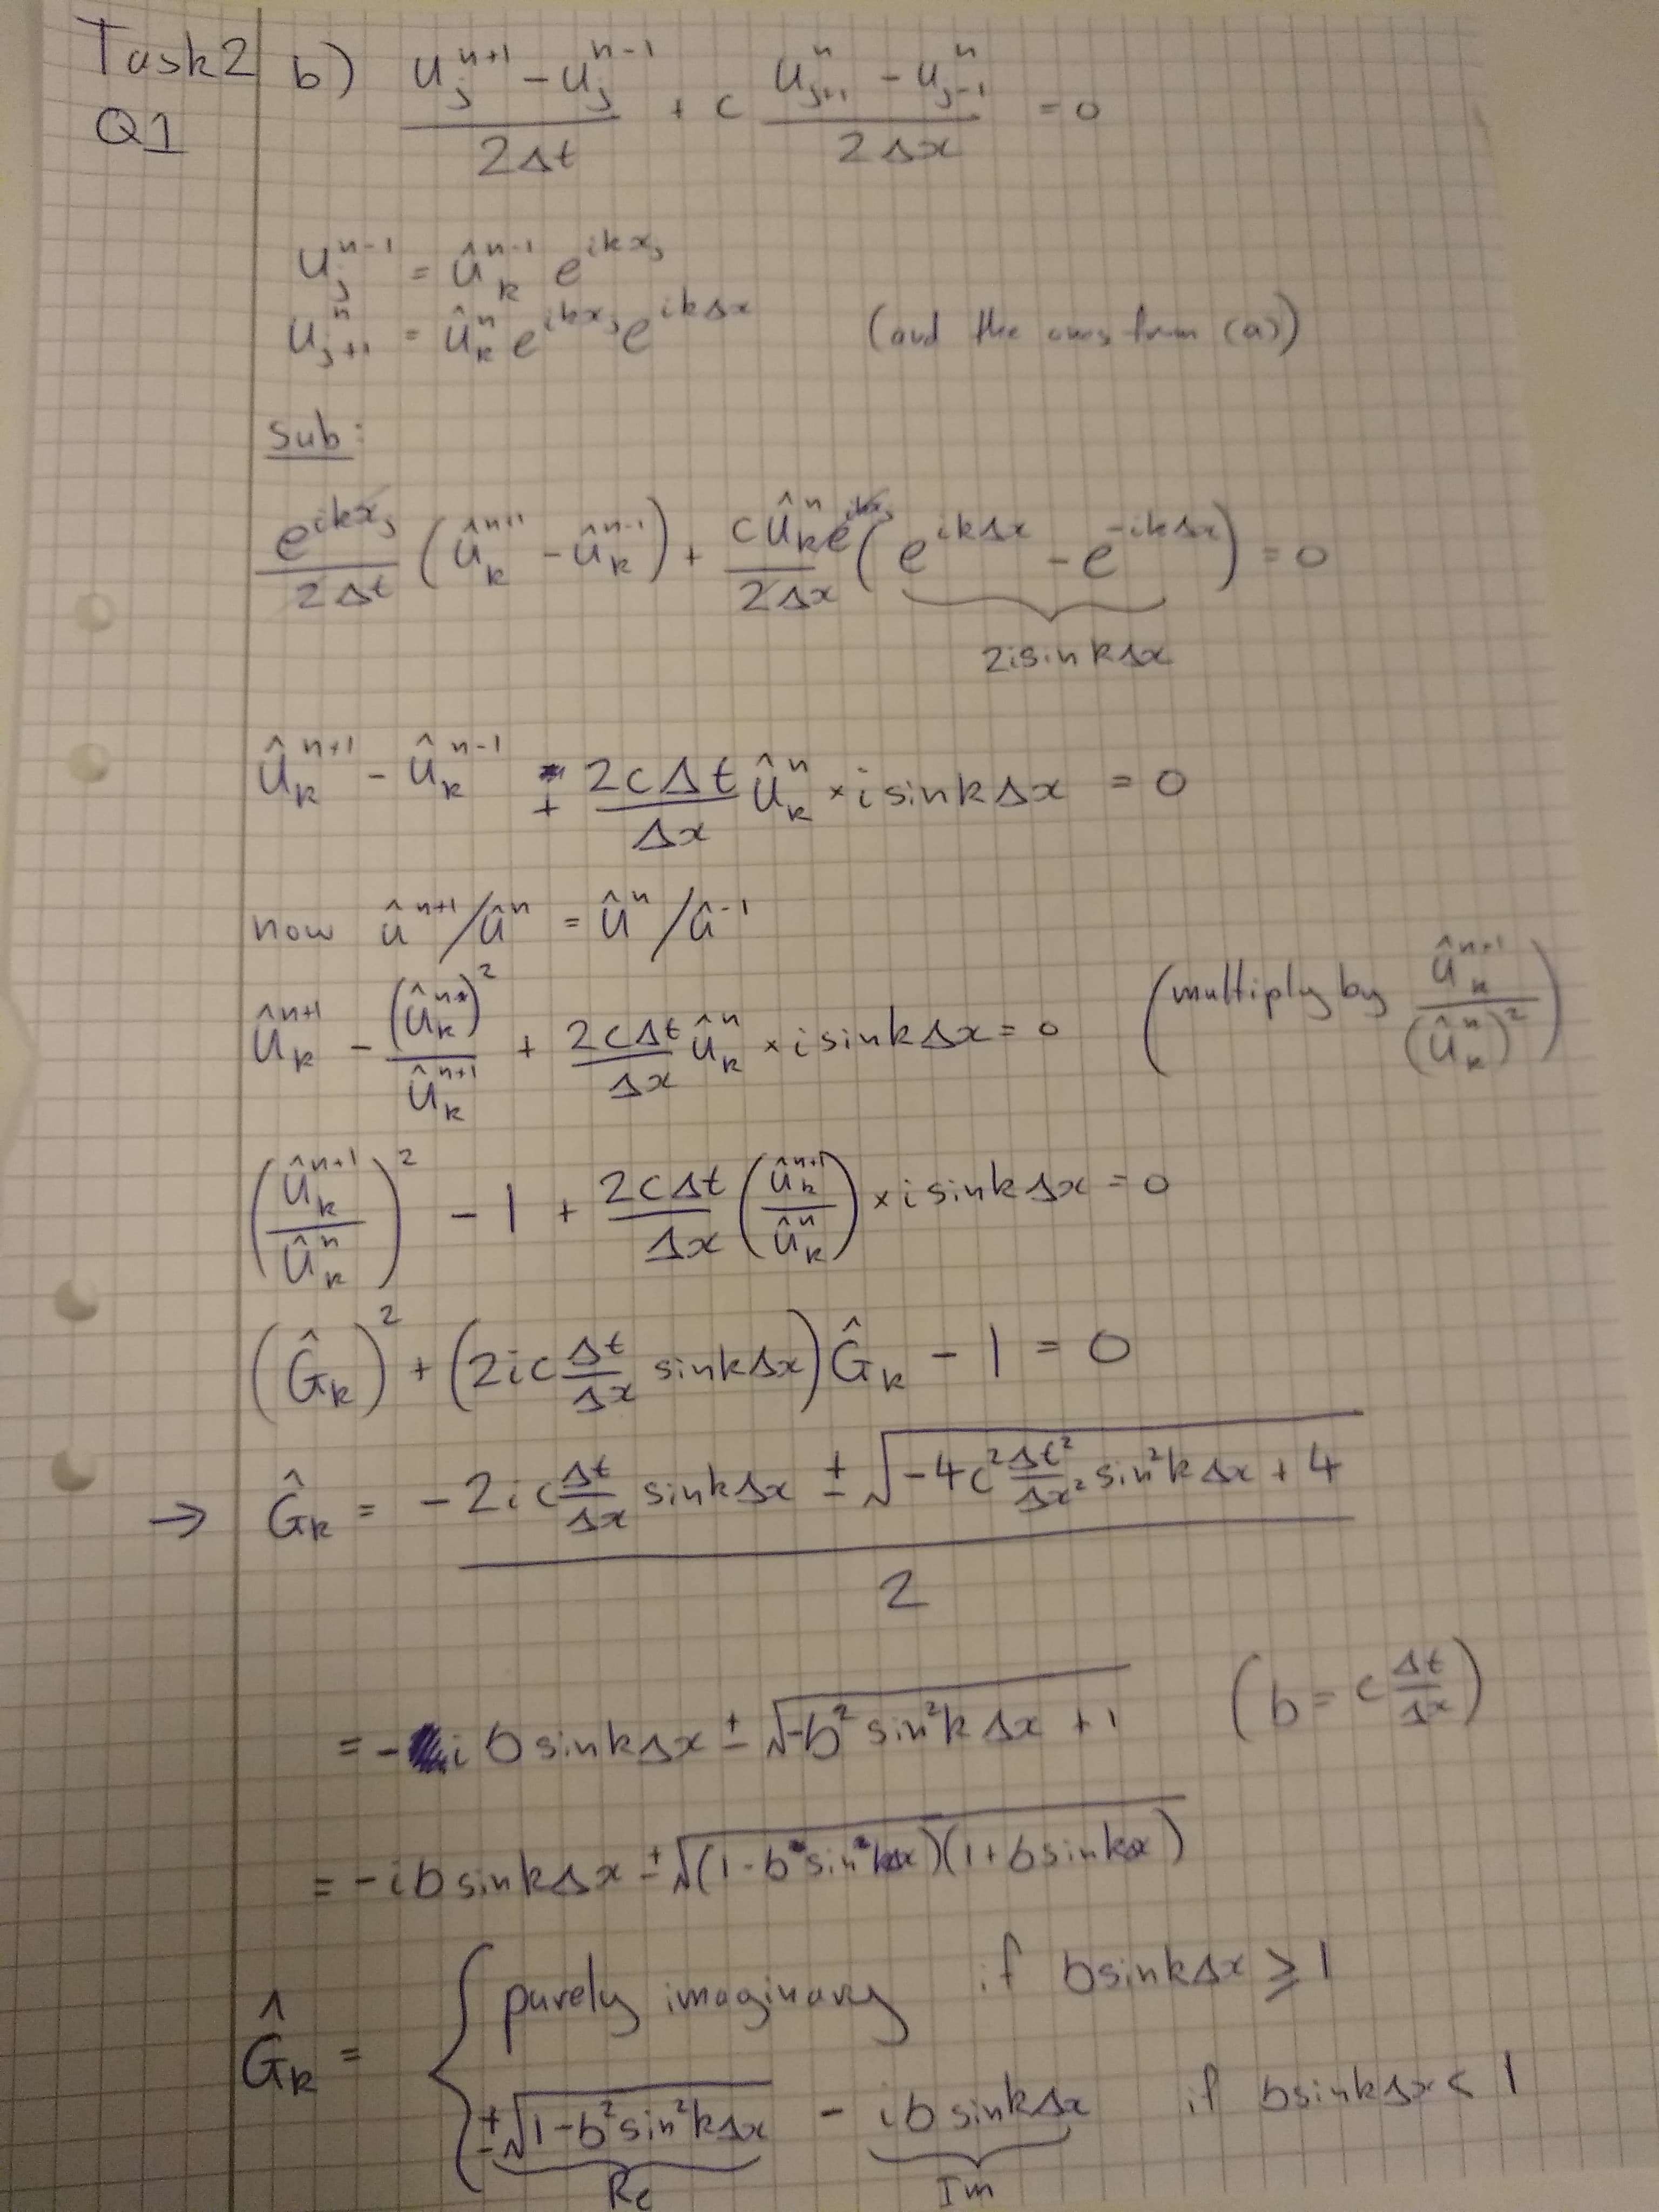 Task2 b) (u_j^{n+1} - u_j^{n-1})/(2Δt) + c (u_{j+1}^n - u_{j-1}^n)/(2Δx) = 0
Q1
u_j^{n-1} = û_k^{n-1} e^{ikx_j}
u_{j+1}^n = û_k^n e^{ikx_j} e^{ikΔx} (and the ones from (a))
sub:
e^{ikx_j}/(2Δt) (û_k^{n+1} - û_k^{n-1}) + (c û_k^n e^{ikx_j})/(2Δx) (e^{ikΔx} - e^{-ikΔx}) = 0
2isinkΔx
û_k^{n+1} - û_k^{n-1} + (2cΔt/Δx) û_k^n × i sinkΔx = 0
now û^{n+1}/û^n = û^n/û^{-1}
û_k^{n+1} - (û_k^n)^2/û_k^{n+1} + (2cΔt/Δx) û_k^n × i sinkΔx = 0 (multiply by û_k^{n+1}/(û_k^n)^2)
(û_k^{n+1}/û_k^n)^2 - 1 + (2cΔt/Δx) (û_k^{n+1}/û_k^n) × i sinkΔx = 0
(Ĝ_k)^2 + (2ic Δt/Δx sinkΔx) Ĝ_k - 1 = 0
→ Ĝ_k = (-2ic Δt/Δx sinkΔx ± √(-4c^2 Δt^2/Δx^2 sin^2kΔx + 4))/2
= - i b sinkΔx ± √(-b^2 sin^2kΔx + 1) (b = c Δt/Δx)
= -ib sinkΔx ± √((1-b sinkΔx)(1+b sinkΔx))
Ĝ_k = { purely imaginary if bsinkΔx ⩾ 1
±√(1-b^2sin^2kΔx) - ib sinkΔx if bsinkΔx < 1
Re Im